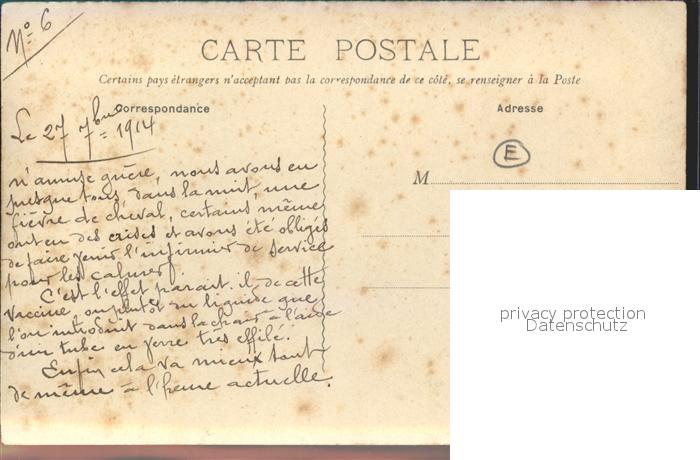 No 6
CARTE POSTALE
Certains pays étrangers n'acceptant pas la correspondance de ce côté, se renseigner à la Poste
Correspondance
Adresse
Le 27 7bre 1914
E
M
n'amuse guère, nous avons eu
presque tous dans la nuit, une
fièvre de cheval, certains même
ont eu des crises et avons été obligés
de faire venir l'infirmier de service
pour les calmer.
C'est l'effet parait-il, de cette
vaccine, ou plutôt du liquide que
l'on introduit dans la chair à l'aide
d'un tube en verre très effilé.
Enfin cela va mieux tout
de même à l'heure actuelle.
privacy protection
Datenschutz